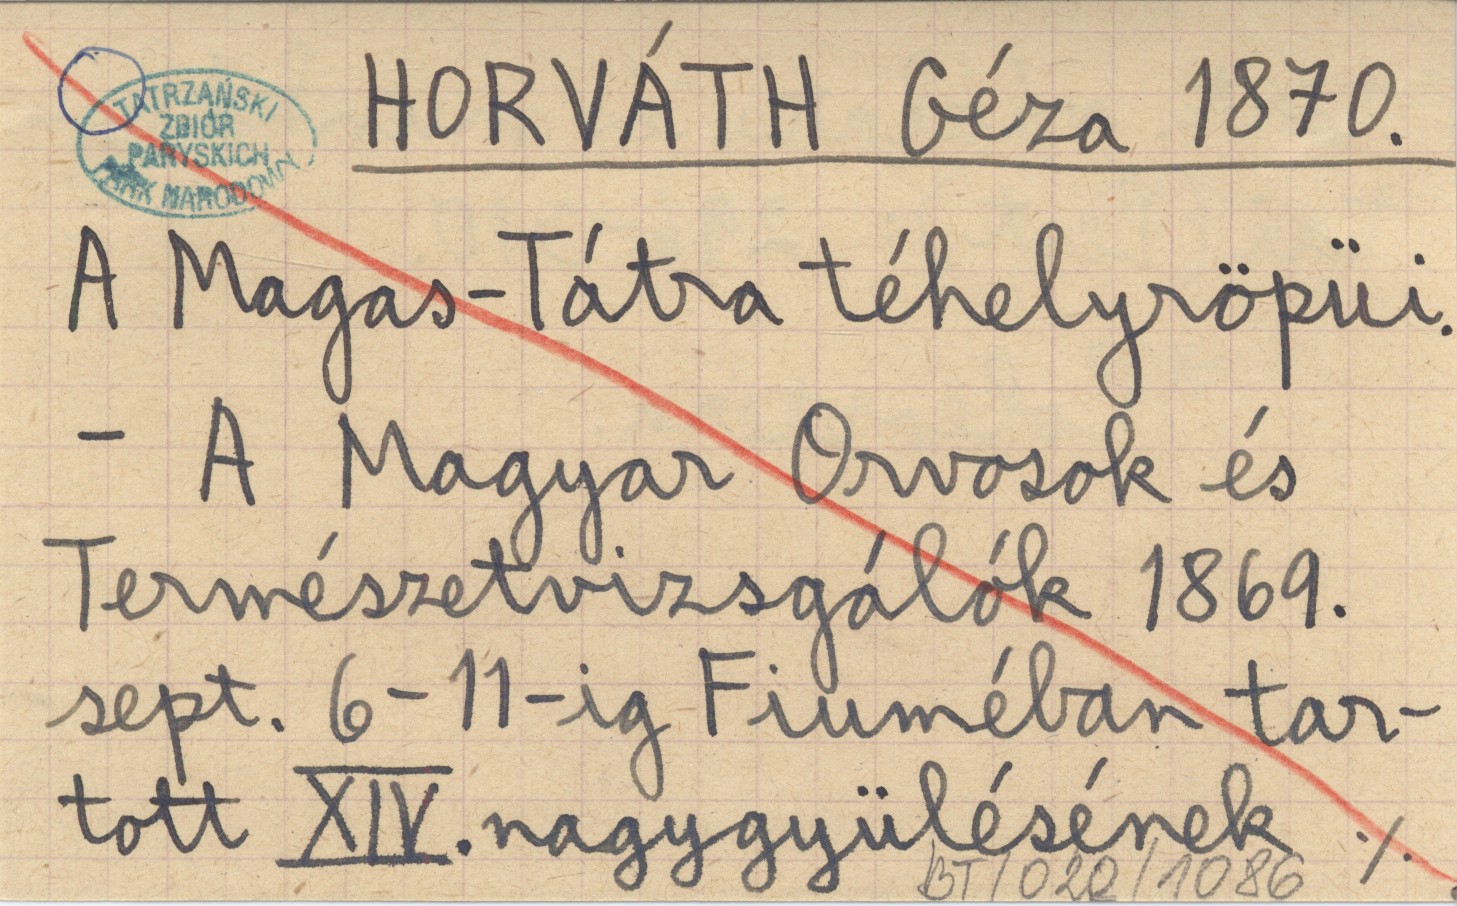 TATRZAŃSKI
ZBIÓR
PARYSKICH
PARK NARODOWY
HORVÁTH Géza 1870.
A Magas-Tátra téhelyröpüi.
- A Magyar Orvosok és
Természetvizsgálók 1869.
sept. 6-11-ig Fiuméban tar-
tott XIV. nagygyülésének ./.
BT/022/1086